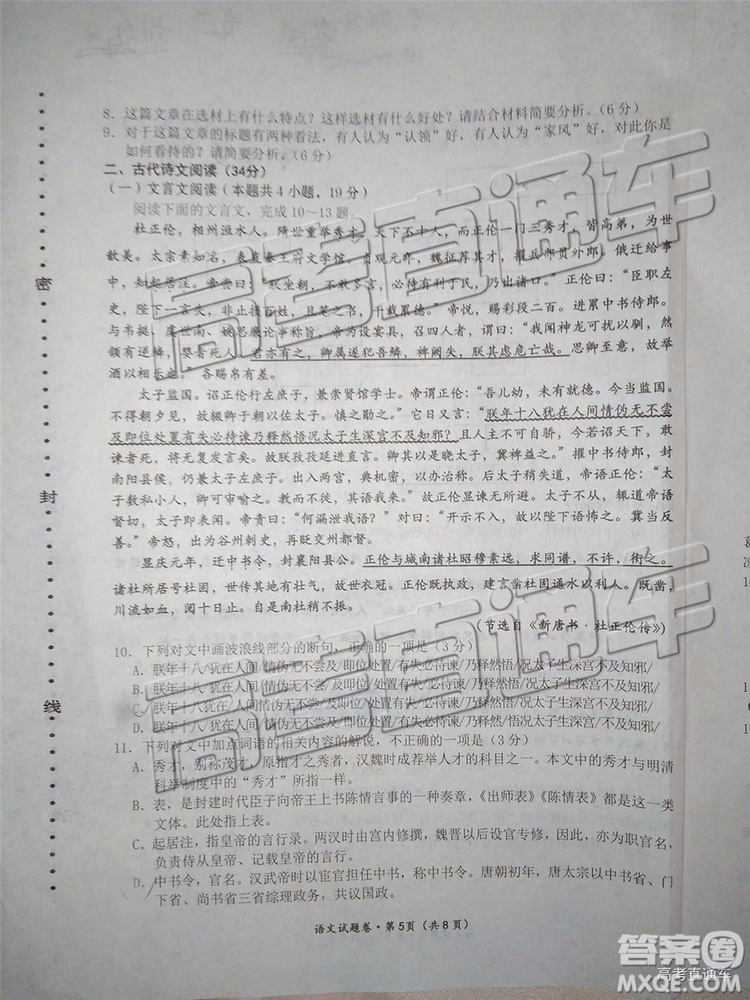 8. 这篇文章在选材上有什么特点？这样选材有什么好处？请结合材料简要分析。（6分）
9. 对于这篇文章的标题有两种看法，有人认为“认领”好，有人认为“家风”好，对此你是
如何看待的？请简要分析。（6分）
二、古代诗文阅读（34分）
（一）文言文阅读（本题共4小题，19分）
阅读下面的文言文，完成10～13题。
杜正伦，相州洹水人。隋世重举秀才，天下不十人，而正伦一门三秀才，皆高第，为世
歆美。太宗素知名，表直秦王府文学馆。贞观元年，魏征荐其才，擢兵部员外郎，俄迁给事
中，知起居注。帝尝曰：“朕坐朝，不敢多言，必待有利于民，乃出诸口。”正伦曰：“臣职左
史，陛下一言失，非止损百姓，且笔之书，千载累德。”帝悦，赐彩段二百。进累中书侍郎。
与韦挺、虞世南、姚思廉论事称旨，帝为设宴，召四人者，谓曰：“我闻神龙可扰以驯，然
颔有逆鳞，婴者死人。君亦有之，卿属遂犯吾鳞，裨阙失，朕其虑危亡哉。思卿至意，故举
酒以相乐。”各赐帛有差。
太子监国，诏正伦行左庶子，兼崇贤馆学士。帝谓正伦：“吾儿幼，未有就德。今当监国，
不得朝夕见，故辍卿于朝以佐太子。慎之勖之。”它日又言：“朕年十八犹在人间情伪无不尝
及即位处置有失必待谏乃释然悟况太子生深宫不及知邪？且人主不可自骄，今若诏天下，敢
谏者死，将无复发言矣。故朕孜孜延进直言。卿其以是晓太子，冀裨益之。”擢中书侍郎，封
南阳县侯，仍兼太子左庶子。出入两宫，典机密，以办治称。后太子稍失道，帝语正伦：“太
子数私小人，卿可审喻之，教而不徙，其语我来。”故正伦显谏无所避。太子不从，辄道帝语
督切，太子即表闻。帝责曰：“何漏泄我语？”对曰：“开示不入，故以陛下语怖之，冀当反
善。”帝怒，出为谷州刺史，再贬交州都督。
显庆元年，迁中书令，封襄阳县公。正伦与城南诸杜昭穆素远，求同谱，不许，衔之。
诸杜所居号杜固，世传其地有壮气，故世衣冠。正伦既执政，建言凿杜固通水以利人。既凿，
川流如血，阅十日止。自是南杜稍不振。
（节选自《新唐书·杜正伦传》）
10. 下列对文中画波浪线部分的断句，正确的一项是（3分）
A. 朕年十八/犹在人间/情伪无不尝/及即位处置/有失必待谏/乃释然悟/况太子生深宫不及知邪/
B. 朕年十八犹在/人间情伪无不尝/及即位/处置有失/必待谏/乃释然悟/况太子生深宫不及知邪/
C. 朕年十八犹在/人间情伪无不尝/及即位/处置有失必待谏/乃释然悟/况太子生深宫不及知邪/
D. 朕年十八/犹在人间/情伪无不尝/及即位/处置有失/必待谏/乃释然悟/况太子生深宫不及知邪/
11. 下列对文中加点词语的相关内容的解说，不正确的一项是（3分）
A. 秀才，别称茂才，原指才之秀者，汉魏时成荐举人才的科目之一。本文中的与明清
科举制度中的“秀才”所指一样。
B. 表，是封建时代臣子向帝王上书陈情言事的一种奏章，《出师表》《陈情表》都是这一类
文体。此处指上表。
C. 起居注，指皇帝的言行录。两汉时由宫内修撰，魏晋以后设官专修，因此，亦为职官名，
负责侍从皇帝、记载皇帝的言行。
D. 中书令，官名。汉武帝时以宦官担任中书，称中书令。唐朝初年，唐太宗以中书省、门
下省、尚书省三省综理政务，共议国政。
语文试题卷·第5页（共8页）
密
封
线
高考直通车
高考直通车
答案圈
高考直通车
MXQE.COM